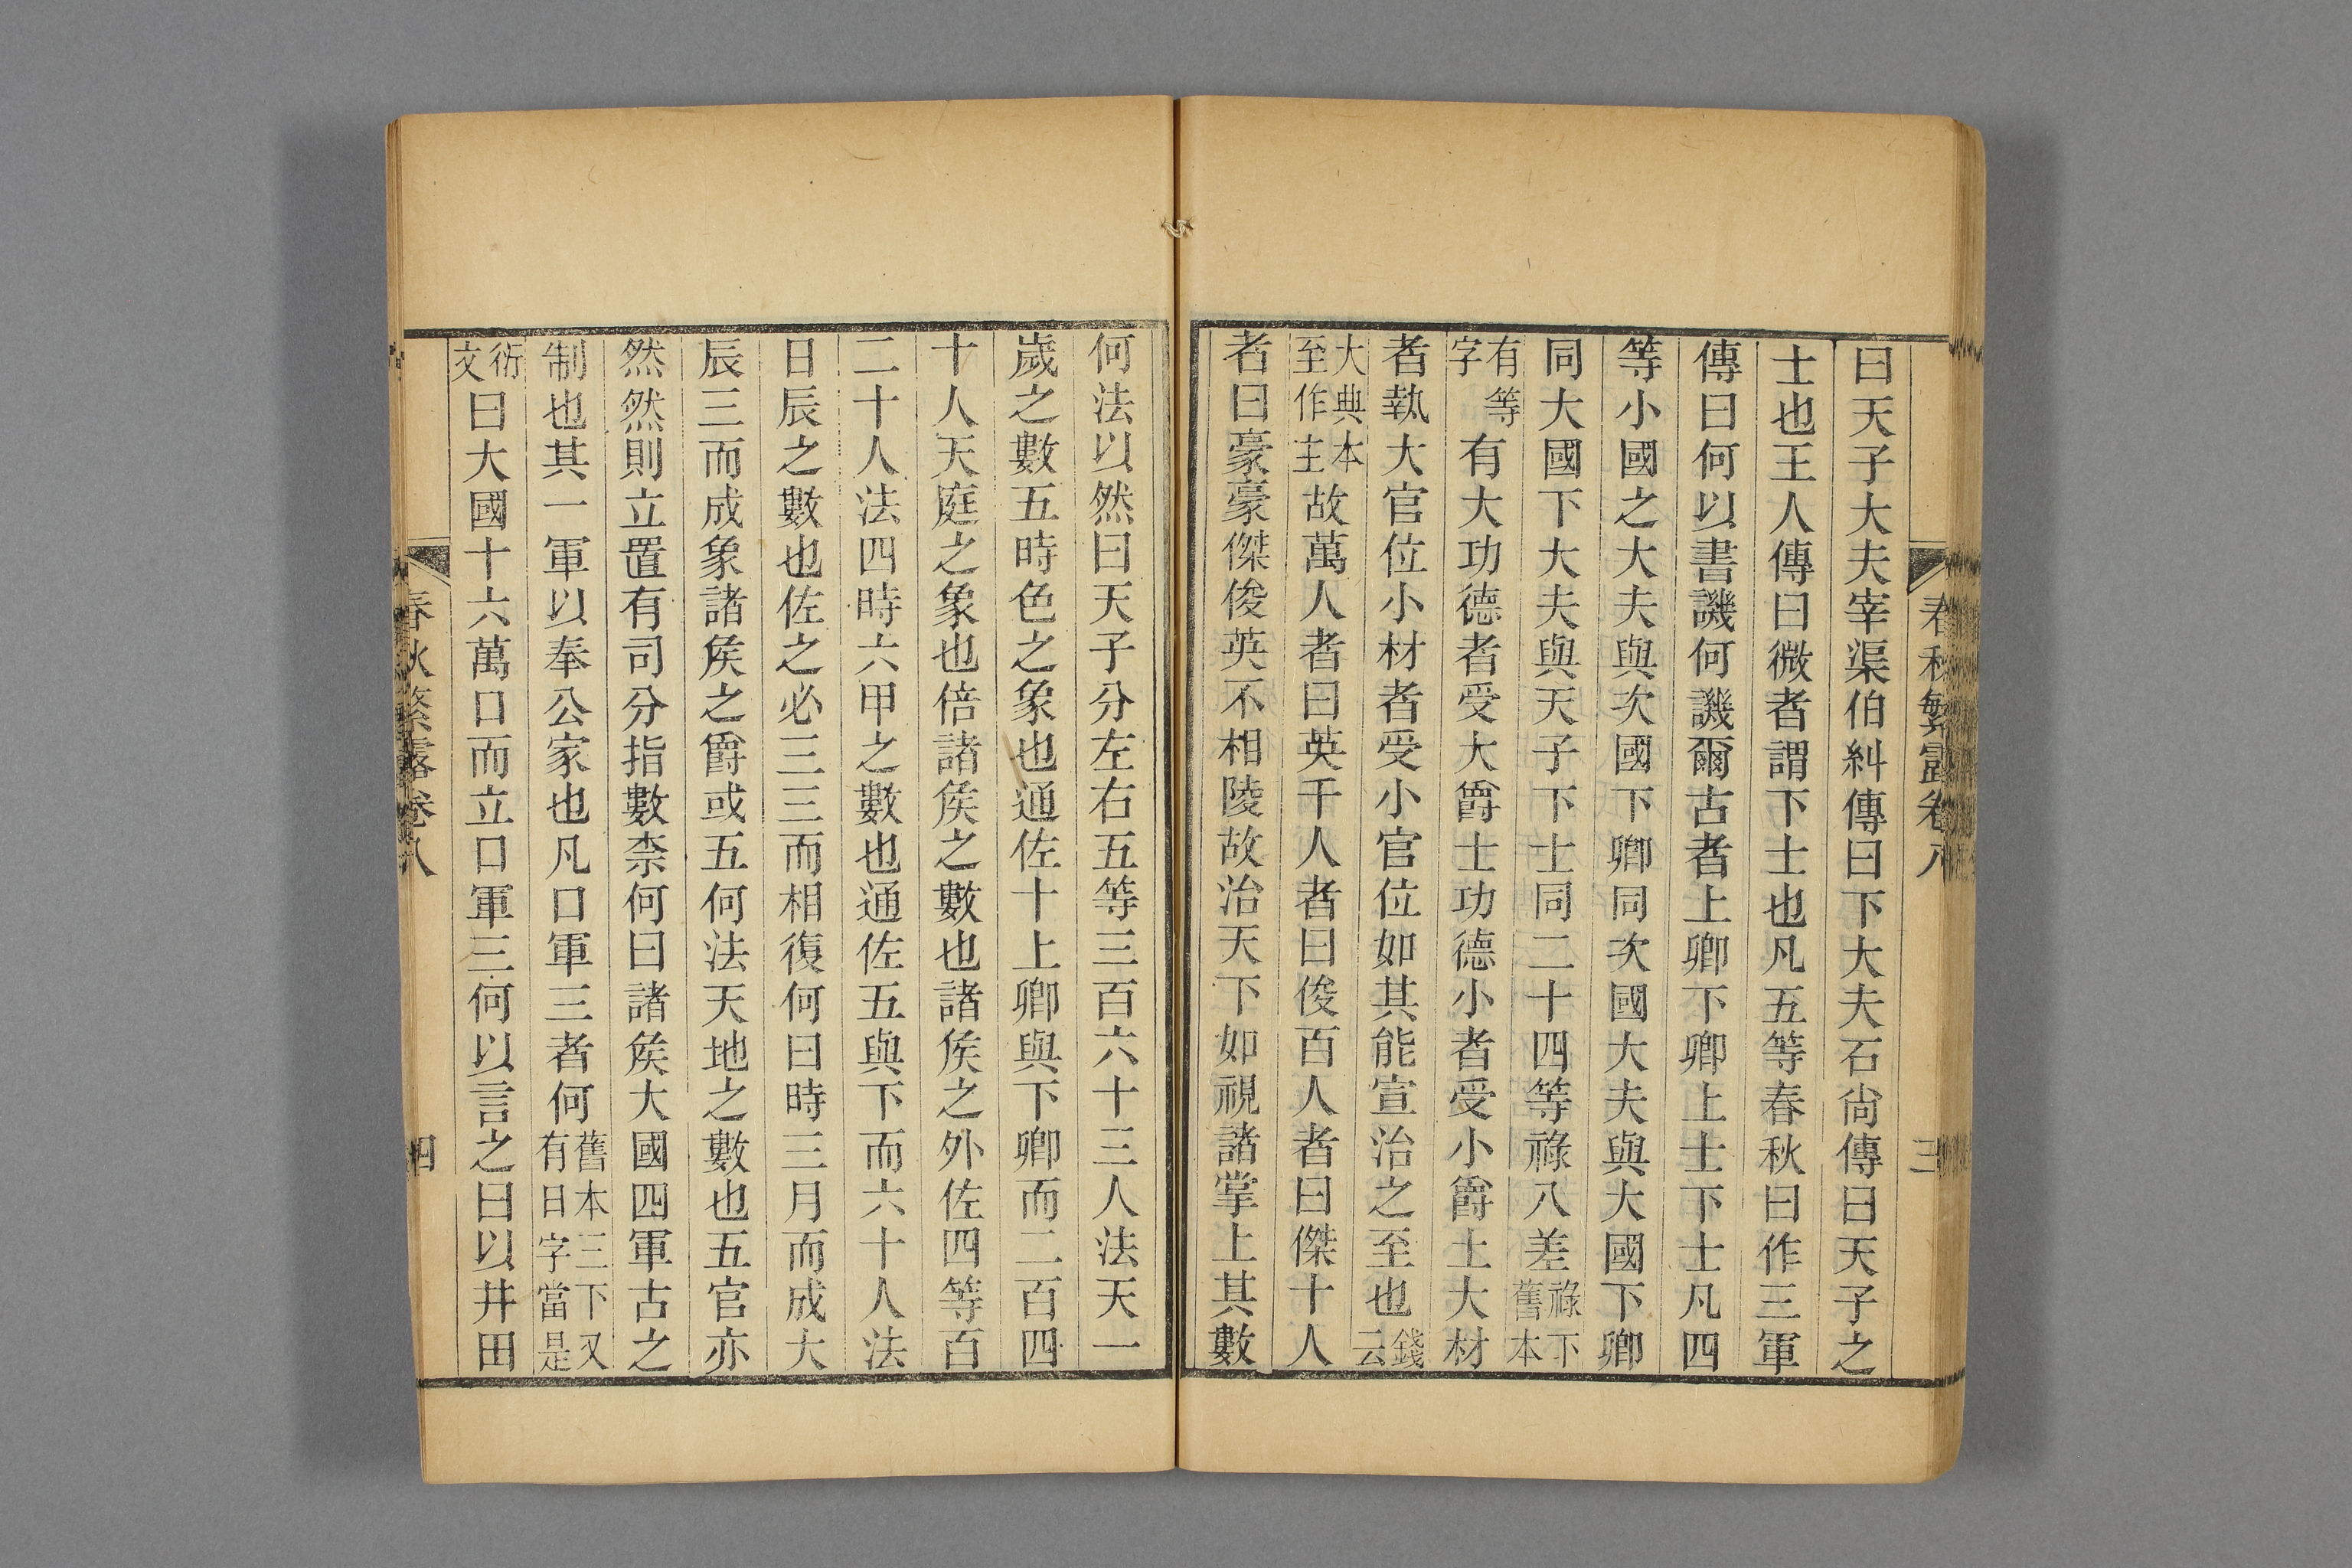 春秋繁露卷八
三
曰天子大夫宰渠伯糾傳曰下大夫石尙傳曰天子之
士也王人傳曰微者謂下士也凡五等春秋曰作三軍
傳曰何以書譏何譏爾古者上卿下卿上士下士凡四
等小國之大夫與次國下卿同次國大夫與大國下卿
同大國下大夫與天子下士同二十四等祿八差祿下舊本
有等字有大功德者受大爵士功德小者受小爵士大材
者執大官位小材者受小官位如其能宣治之至也錢云
大典本至作主故萬人者曰英千人者曰俊百人者曰傑十人
者曰豪豪傑俊英不相陵故治天下如視諸掌上其數
何法以然曰天子分左右五等三百六十三人法天一
歲之數五時色之象也通佐十上卿與下卿而二百四
十人天庭之象也倍諸矦之數也諸矦之外佐四等百
二十人法四時六甲之數也通佐五與下而六十人法
日辰之數也佐之必三三而相復何曰時三月而成大
辰三而成象諸矦之爵或五何法天地之數也五官亦
然然則立置有司分指數柰何曰諸矦大國四軍古之
制也其一軍以奉公家也凡口軍三者何舊本三下又有曰字當是
衍文曰大國十六萬口而立口軍三何以言之曰以井田
春秋繁露卷八
四